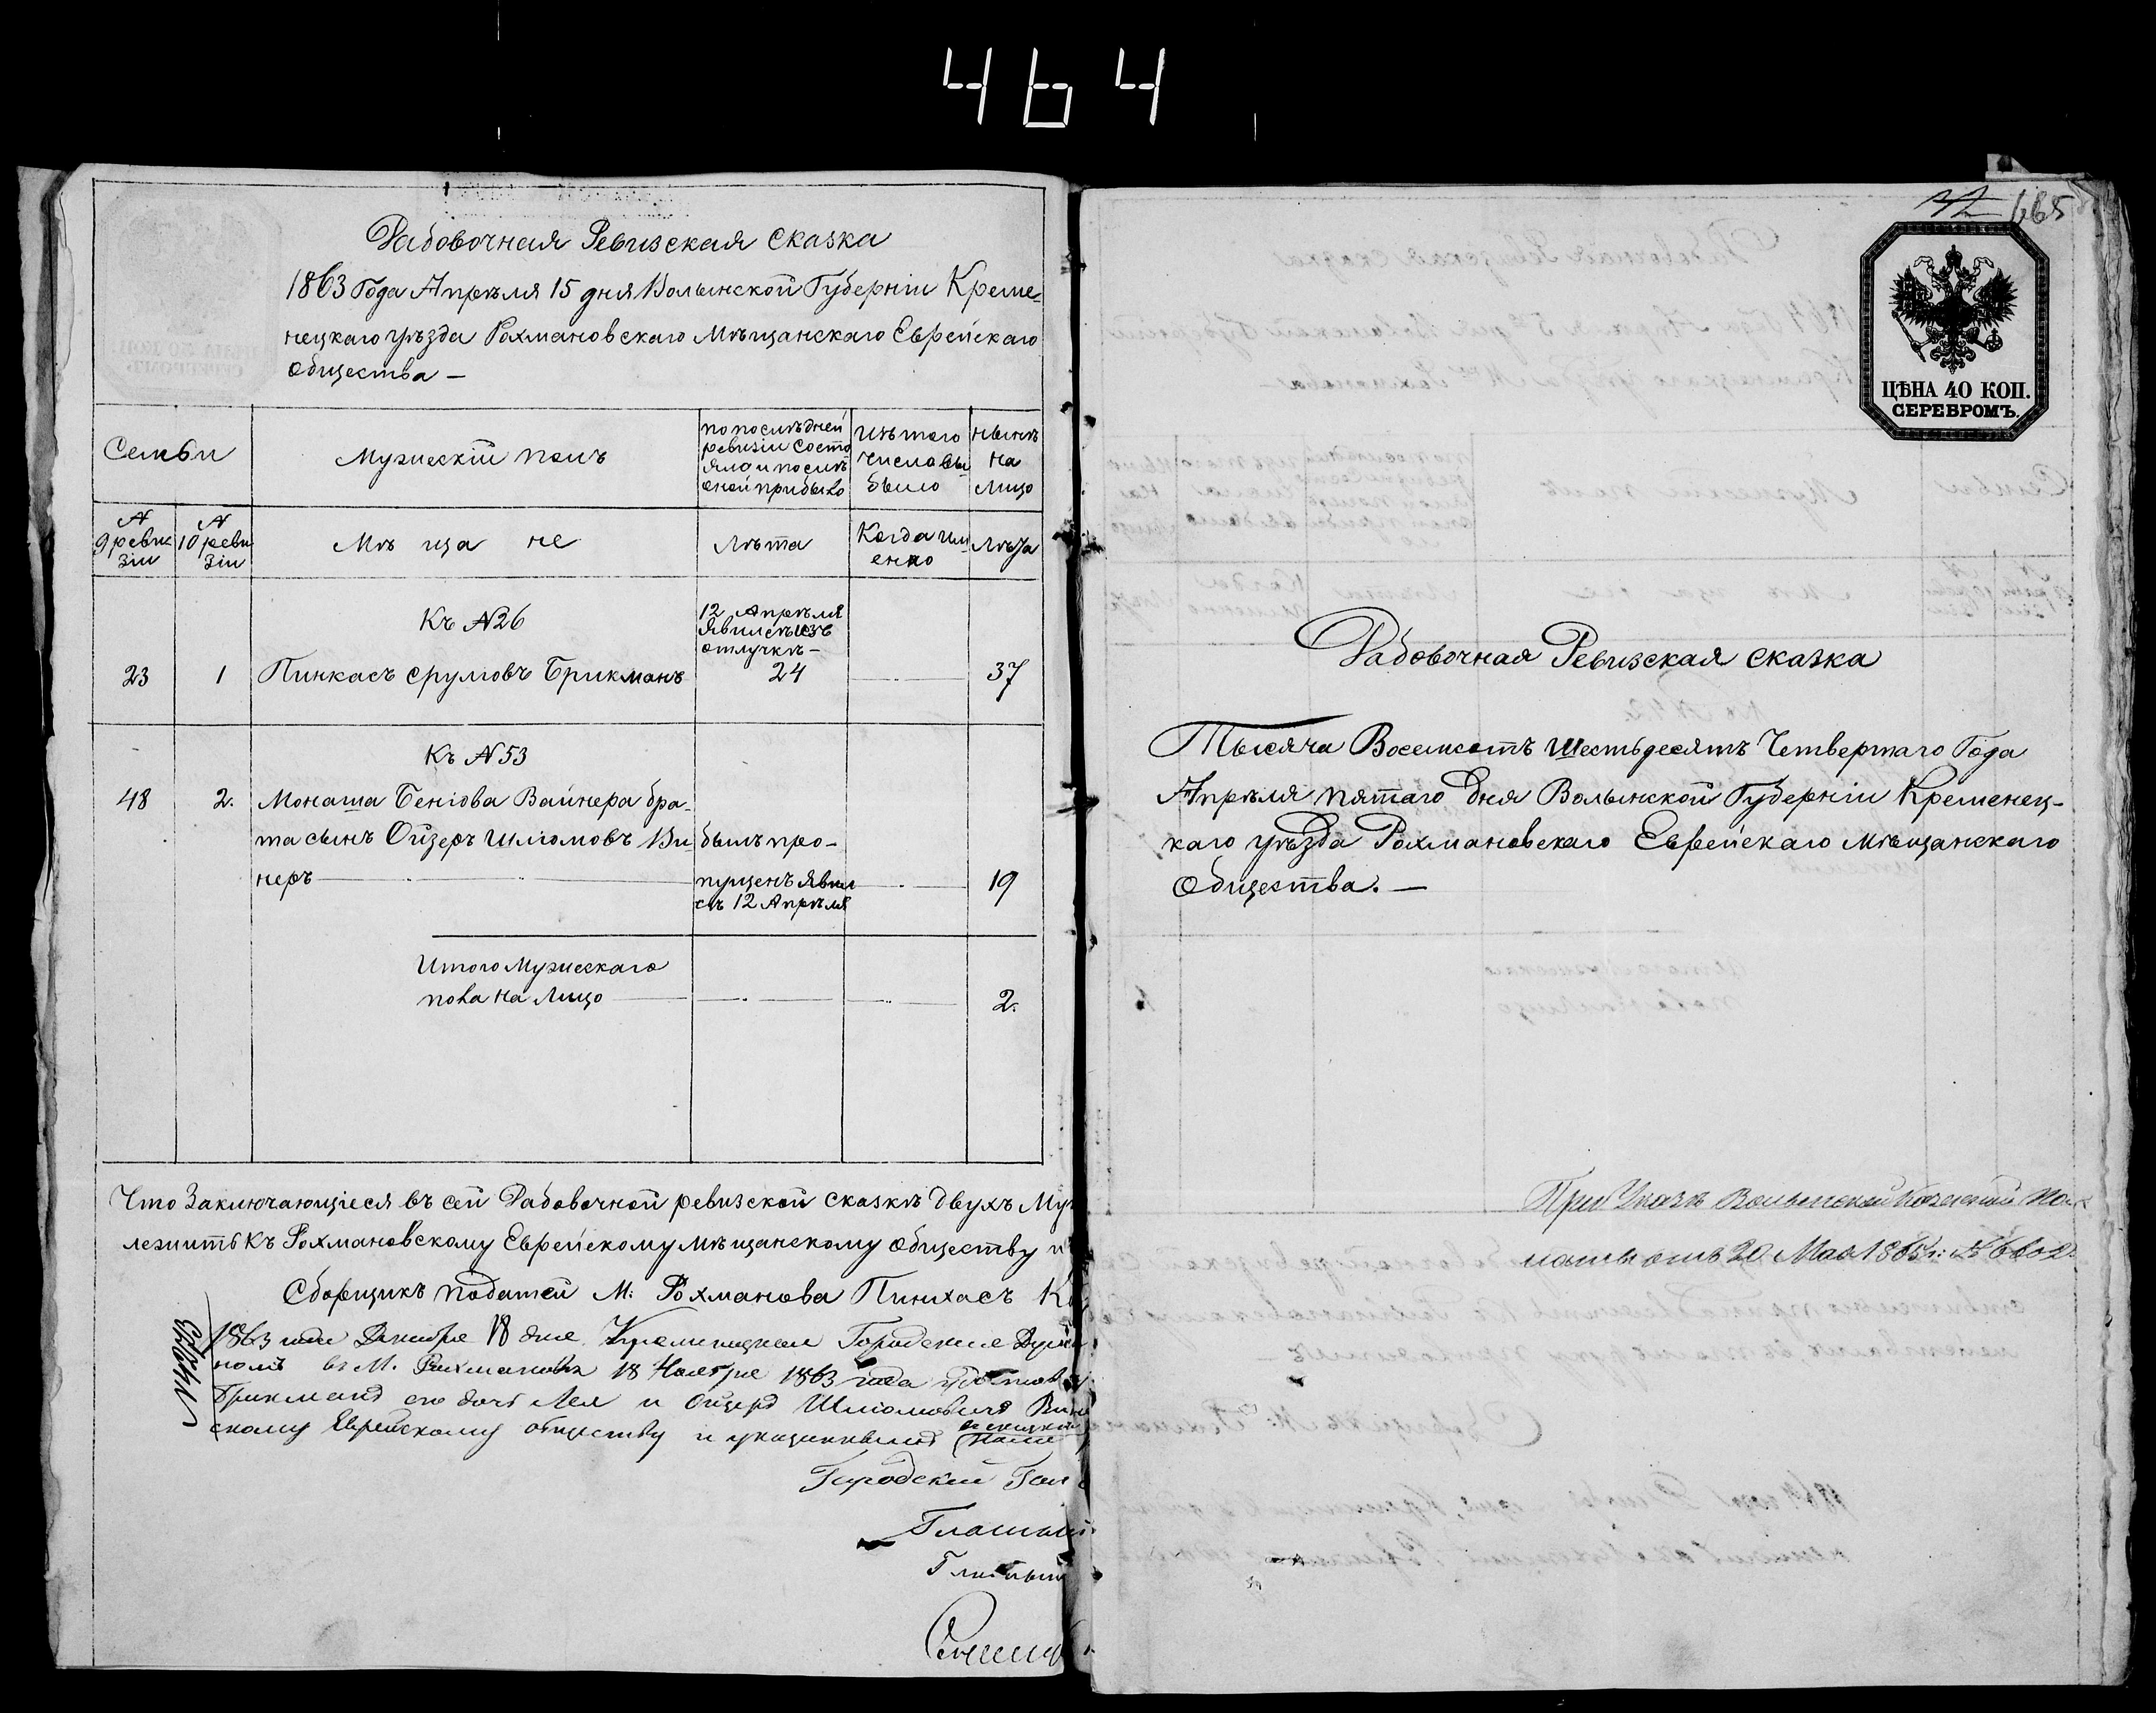 464
Рабовочная Ревизская сказка
1863 Года Апрѣля 15 дня Волынской Губерніи Креме-
нецкаго уѣзда Рохмановскаго Мѣщанскаго Еврейскаго
Общества —
Семьи
Мужескій полъ
по послѣдней ревизіи состо яло и послѣ оной прибыло
изъ того числа вы было
нынѣ на лицо
№ 9 ревизіи
№ 10 ревизіи
Мѣщане
Лѣта
Когда именно
Лѣта
Къ №26
12 Апрѣля явилсь изъ отлучкѣ —
23 1 Пинкасъ Срулювъ Брикманъ 24 37
Къ №53
48 2. Монаша Беніова Вайнера бра-
та сынъ Ойзеръ Шліомовъ Ви былъ про-
неръ пущенъ явил 19
съ 12 Апрѣля
Итого Мужескаго
пола на лицо 2.
Что Заключающіеся въ сей Рабовочной ревизской сказкѣ двухъ Му
лежитъ къ Рохмановскому Еврейскому мѣщанскому обществу
Сборщикъ податей М: Рохманова Пинхасъ
1863 года Декабря 18 дня Кременецкая Городская Дума
въ М. Рохмановкѣ 18 Ноября 1863 года
Брикманъ его дочь Лея и Ойзеръ Шліомовичъ
скому Еврейскому обществу и
Городской
Гласный
Гласный
665
ЦѢНА 40 КОП.
СЕРЕБРОМЪ.
Рабовочная Ревизская сказка
Тысяча Восемсотъ Шестьдесятъ Четвертаго Года
Апрѣля пятаго Дня Волынской Губерніи Кременец-
каго уѣзда Рохмановскаго Еврейскаго мѣщанскаго
Общества. —
При Указѣ Волынской Казенной Па-
латы отъ 20 Мая 1865 г: